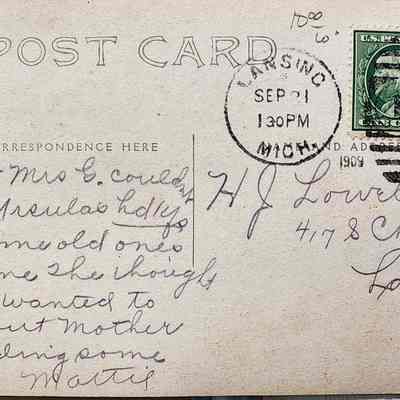 10 00
POST CARD
LANSING
SEP 21
1 30 PM
MICH.
1909
U.S. PO
CORRESPONDENCE HERE
AND ADDRE
Mrs E. couldn't
Ursulas
me old ones
me She thought
wanted to
out Mother
ding some
Mattie
H J Lowe
417 S C
La